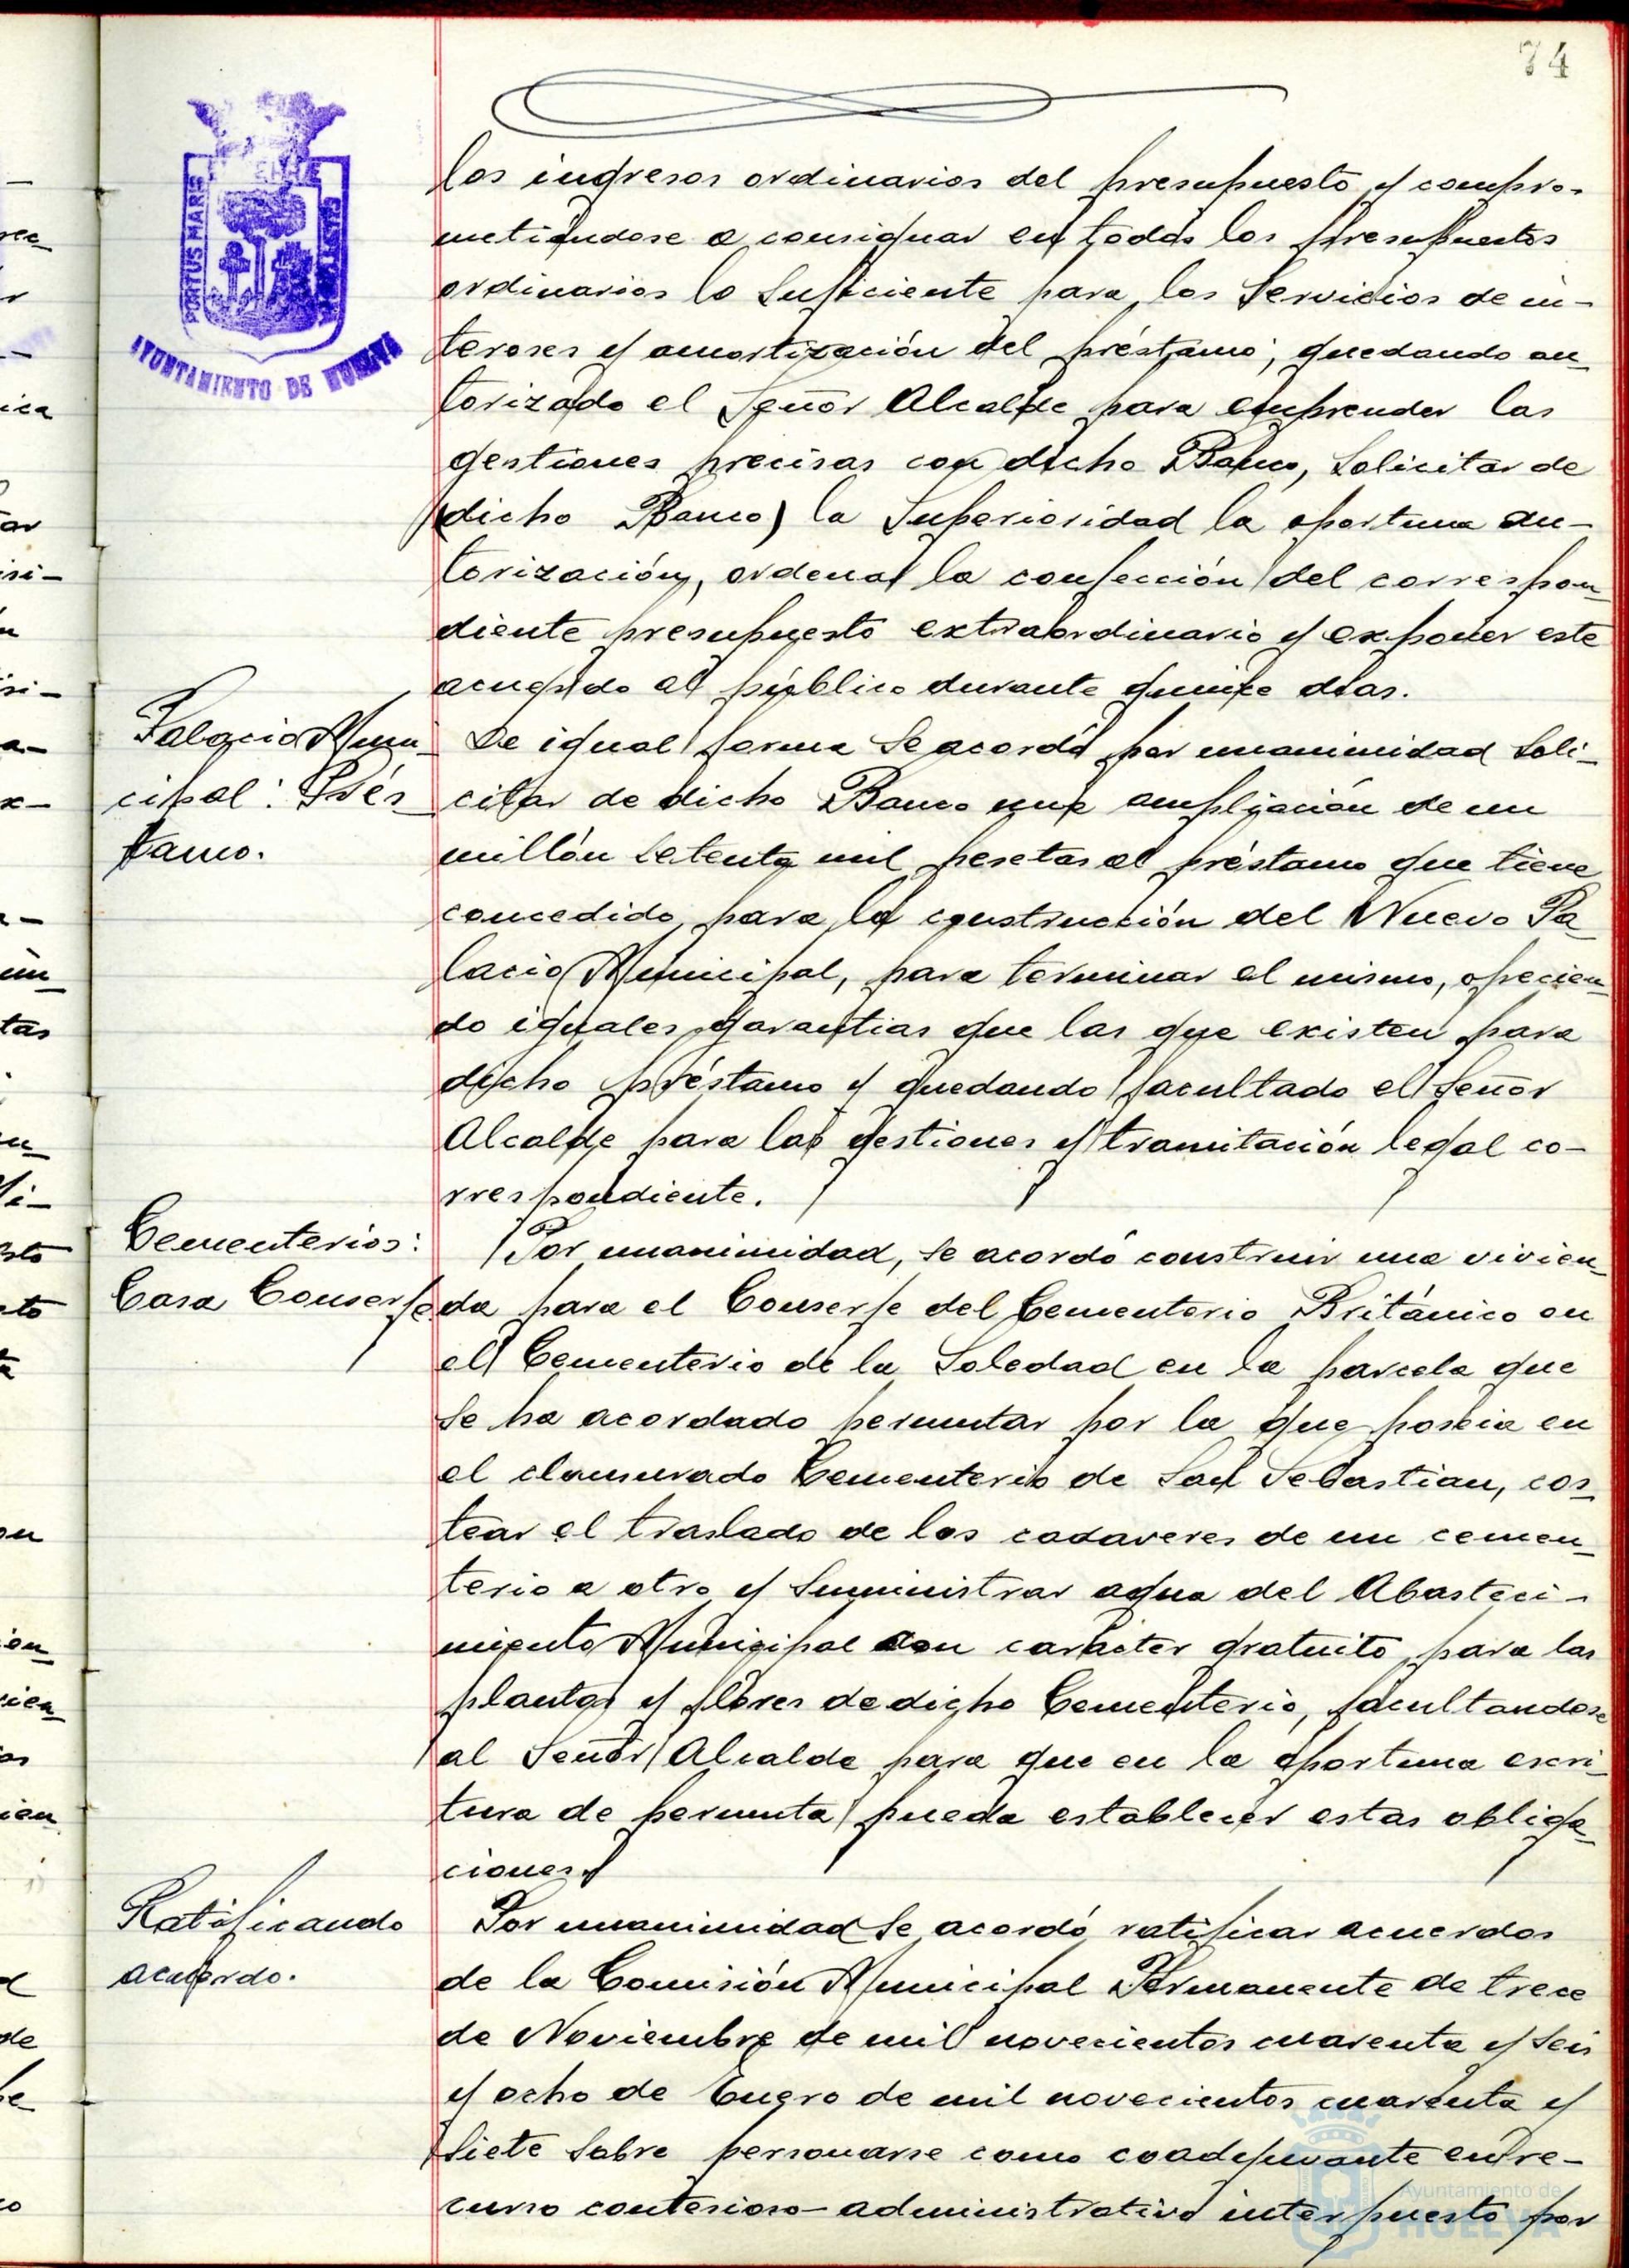 74
PORTUS MARIS
AYUNTAMIENTO DE HUELVA
los ingresos ordinarios del presupuesto y compro-
metiéndose a consignar en todos los presupuestos
ordinarios lo suficiente para los Servicios de in-
tereses y amortización del préstamo; quedando au-
torizado el Señor Alcalde para emprender las
gestiones precisas con dicho Banco, solicitar de
(dicho Banco) la Superioridad la oportuna au-
torización, ordenar la confección del correspon-
diente presupuesto extraordinario y exponer este
acuerdo al público durante quince días.
Palacio Muni-
cipal: Prés-
tamo.
De igual forma se acordó por unanimidad soli-
citar de dicho Banco una ampliación de un
millón setenta mil pesetas al préstamo que tiene
concedido para la construcción del Nuevo Pa-
lacio Municipal, para terminar el mismo, ofrecien-
do iguales garantias que las que existen para
dicho préstamo y quedando facultado el Señor
Alcalde para las gestiones y tramitación legal co-
rrespondiente.
Cementerios:
Casa Conserje
Por unanimidad, se acordó construir una vivien-
da para el Conserje del Cementerio Británico en
el Cementerio de la Soledad en la parcela que
se ha acordado permutar por la que poseia en
el clausurado Cementerio de San Sebastian, cos-
tear el traslado de los cadaveres de un cemen-
terio a otro y suministrar agua del Abasteci-
miento Municipal con carácter gratuito para las
plantas y flores de dicho Cementerio, facultandose
al Señor Alcalde para que en la oportuna escri-
tura de permuta pueda establecer estas obliga-
ciones.
Ratificando
acuerdo.
Por unanimidad se acordó ratificar acuerdos
de la Comisión Municipal Permanente de trece
de Noviembre de mil novecientos cuarenta y seis
y ocho de Enero de mil novecientos cuarenta y
siete sobre personarse como coadyuvante en re-
curso contencioso-administrativo interpuesto por
Ayuntamiento de
HUELVA